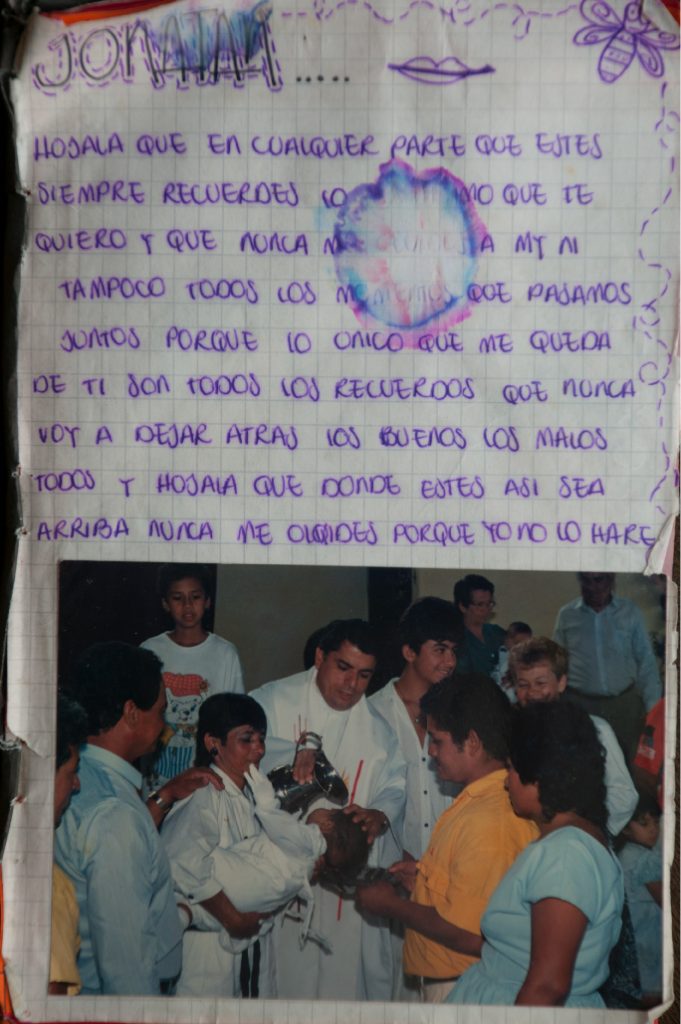 JONATAN .....
HOJALA QUE EN CUALQUIER PARTE QUE ESTES
SIEMPRE RECUERDES LO QUE TE
QUIERO Y QUE NUNCA ME OLVIDES A MY NI
TAMPOCO TODOS LOS MOMEMOS QUE PASAMOS
JUNTOS PORQUE LO UNICO QUE ME QUEDA
DE TI SON TODOS LOS RECUERDOS QUE NUNCA
VOY A DEJAR ATRAS LOS BUENOS LOS MALOS
TODOS Y HOJALA QUE DONDE ESTES ASI SEA
ARRIBA NUNCA ME OLVIDES PORQUE YO NO LO HARE